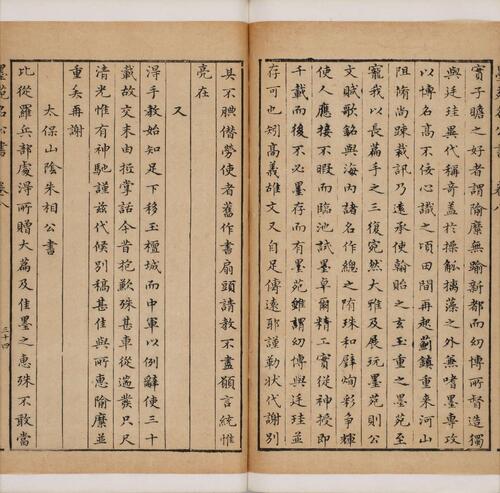 賓子瞻之好者謂隃麋無踰新都而幼博所督造獨
與廷珪異代稱奇蓋於操觚摛藻之外無嗜墨專攻
以博名高不佞心識之頃田間再起薊鎮重來河山
阻脩尚疎裁訊乃遠承使翰貽之玄玉重之墨苑至
寵我以長篇手之三復宛然大雅及展玩墨苑則公
文賦歌銘與海內諸名作總之隋珠和璧炳彩爭輝
使人應接不暇而臨池試墨卓爾精工實從神授即
千載而後不必墨存而有墨苑雖謂幼博與廷珪並
存可也矧高義雄文又自足傳遠耶謹勒狀代謝別
具不腆僭勞使者舊作書扇頭請教不盡願言統惟
亮在
又
淂手教始知足下移玉檀城而中軍以例辭使三十
載故交未由抵掌話今昔抱歉殊甚車從過幾只尺
清光惟有神馳謹茲代候別稿甚佳與所惠隃麋並
重矣再謝
太保山陰朱相公書
比從羅兵部處淂所贈大篇及佳墨之惠殊不敢當
墨苑名公書
卷八
三十四